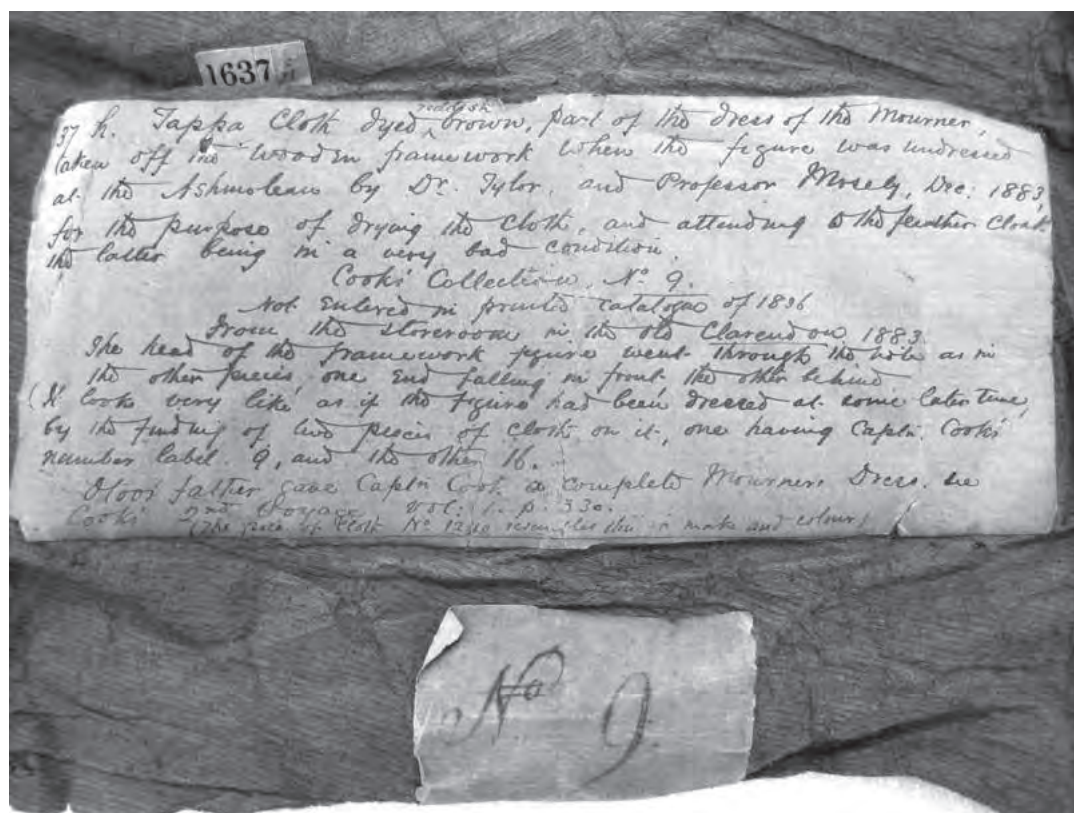 1637
37 h. Tappa Cloth dyed reddish brown, part of the dress of the Mourner,
taken off the wooden framework when the figure was undressed
at the Ashmolean by Dr. Tylor, and Professor Mosely, Dec: 1883,
for the purpose of drying the cloth, and attending to the feather cloak
the latter being in a very bad condition.
Cook's Collection, No. 9.
Not Entered in printed catalogue of 1836
From the storeroom in the old Clarendon 1883.
The head of the framework figure went through the hole as in
the other pieces, one end falling in front the other behind
(It looks very like as if the figure had been dressed at some later time,
by the finding of two pieces of cloth on it, one having Captn. Cook's
number label. 9, and the other 16.
Otoo's father gave Captn Cook a complete Mourners Dress. see
Cook's 2nd Voyage vol: 1. p. 330.
(The piece of Cloth No resembles this in make and colour)
No 9.